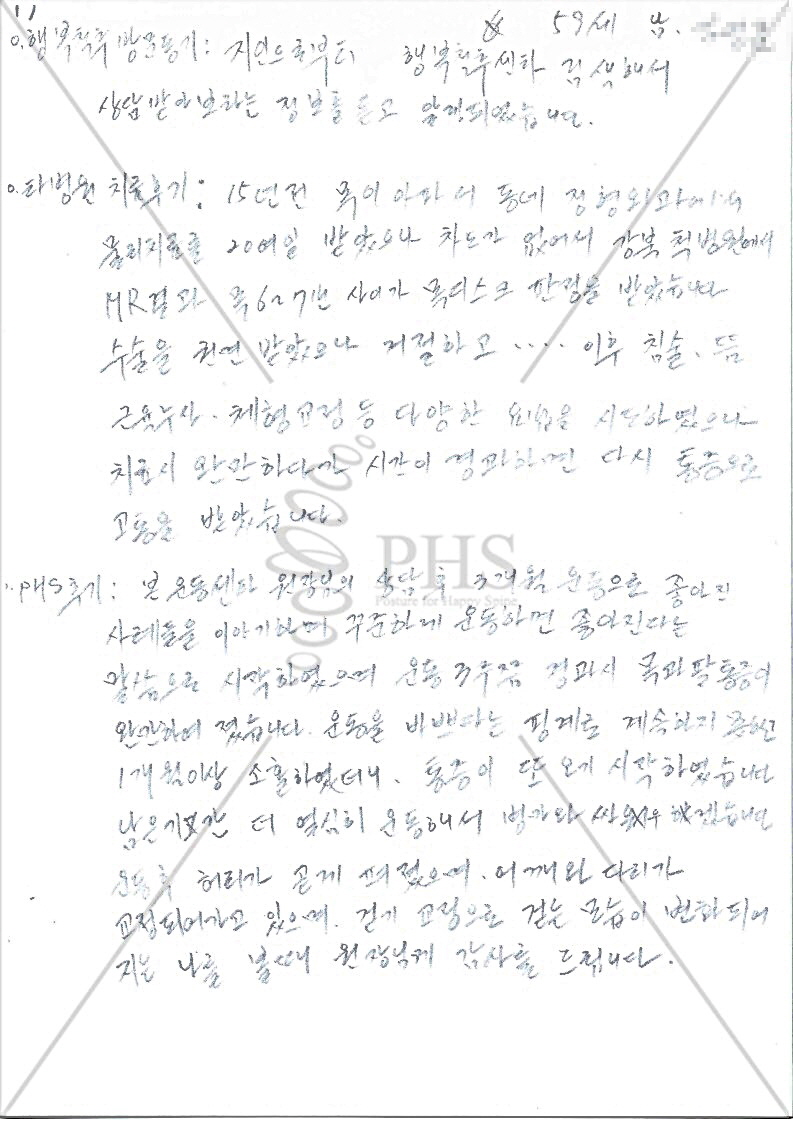 11
☆ 59세 남.
o.행복척추 방문동기: 지인으로부터 행복척추센타 검색해서
상담받아보라는 정보를 듣고 알게되었습니다.
o.타병원 치료후기: 15년전 목이 아파서 동네 정형외과에서
물리치료를 20여일 받았으나 차도가 없어서 강북 척병원에서
MR결과 목6~7번 사이가 목디스크 판정을 받았습니다
수술을 권면 받았으나 거절하고 .... 이후 침술. 뜸
근육주사. 체형교정 등 다양한 요법을 시도하였으나
치료시 완만하다가 시간이 경과하면 다시 통증으로
고통을 받았습니다.
PHS
Posture for Happy Spine
PHS후기: 본 운동센타 원장님의 상담 후 3개월 운동으로 좋아진
사례들을 이야기하며 꾸준하게 운동하면 좋아진다는
말씀으로 시작하였으며 운동 3주쯤 경과시 목과 팔 통증이
완만하여 졌습니다. 운동을 바쁘다는 핑계로 계속하지 못하고
1개월이상 소홀하였더니. 통증이 또 오기 시작하였습니다
남은기간 더 열심히 운동해서 병마와 싸우겠습니다
운동후 허리가 곧게 펴졌으며. 어깨와 다리가
교정되어가고 있으며. 걷기 교정으로 걷는 모습이 변화되어
지는 나를 볼때 원장님께 감사를 드립니다.